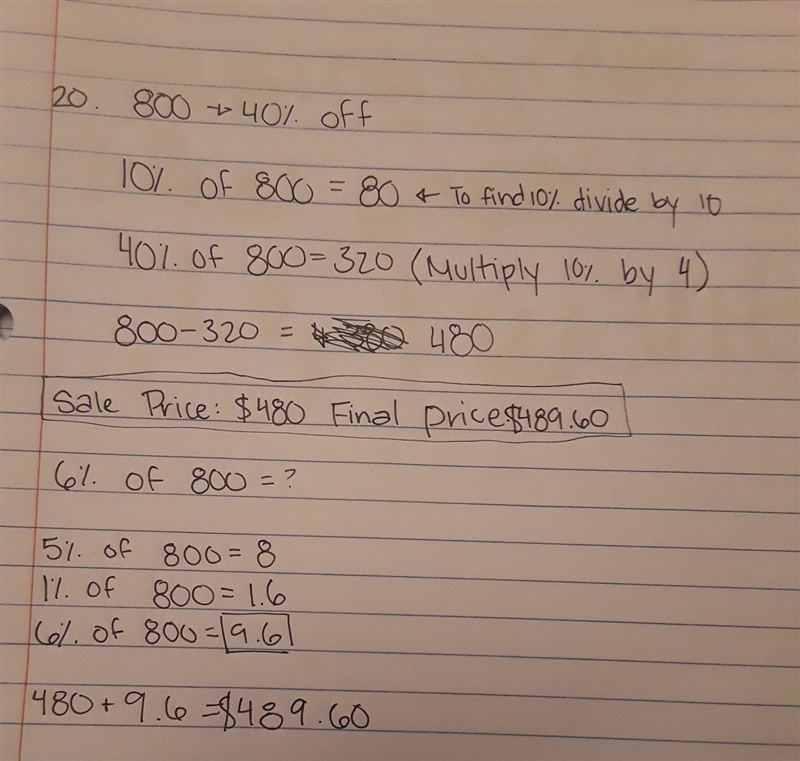 20. 800 → 40% off
10% of 800 = 80 ← To find 10% divide by 10
40% of 800 = 320 (Multiply 10% by 4)
800 - 320 = 480
Sale Price: $480 Final price: $489.60
6% of 800 = ?
5% of 800 = 8
1% of 800 = 1.6
6% of 800 = 9.6
480 + 9.6 = $489.60